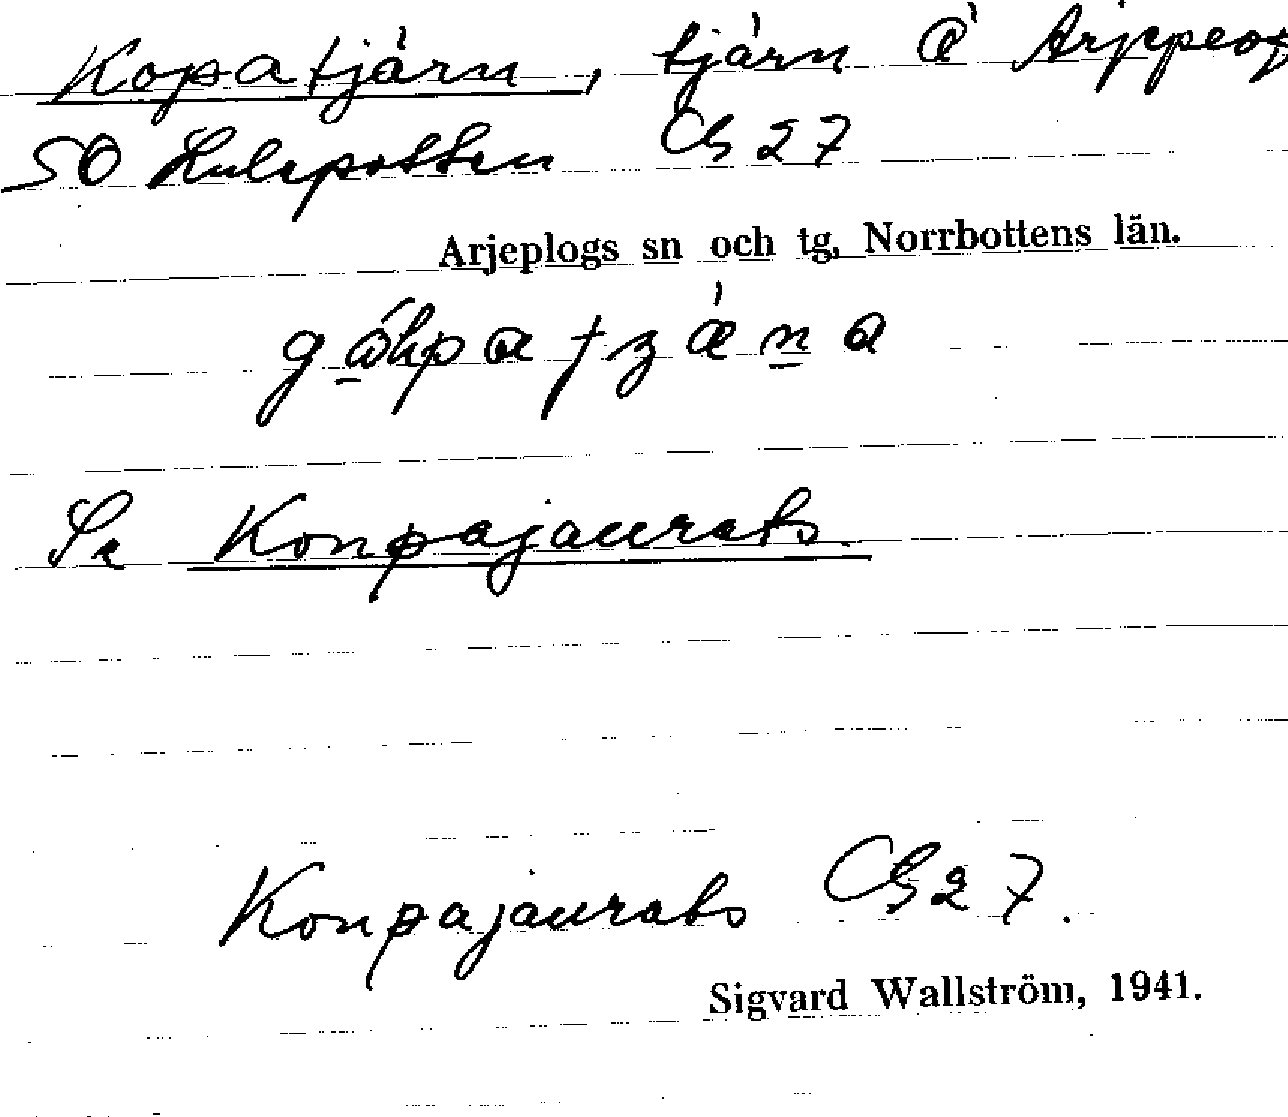 Kopatjärn, tjärn å Arjeplog
SO Lulepotten Gb 27
Arjeplogs sn och tg, Norrbottens län.
Se Konpajaurats.
Konpajaurats Gb 27.
Sigvard Wallström, 1941.